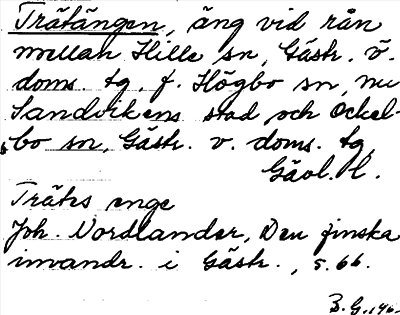 Trätängen, äng vid rån
mellan Hille sn, Gästr. ö.
doms. tg, f. Högbo sn, nu
Sandvikens stad och Ockel-
bo sn, Gästr. v. doms. tg,
Gävl. l.
Träters enge
Joh. Nordlander, Den finska
invandr. i Gästr., s. 66.
B. G.